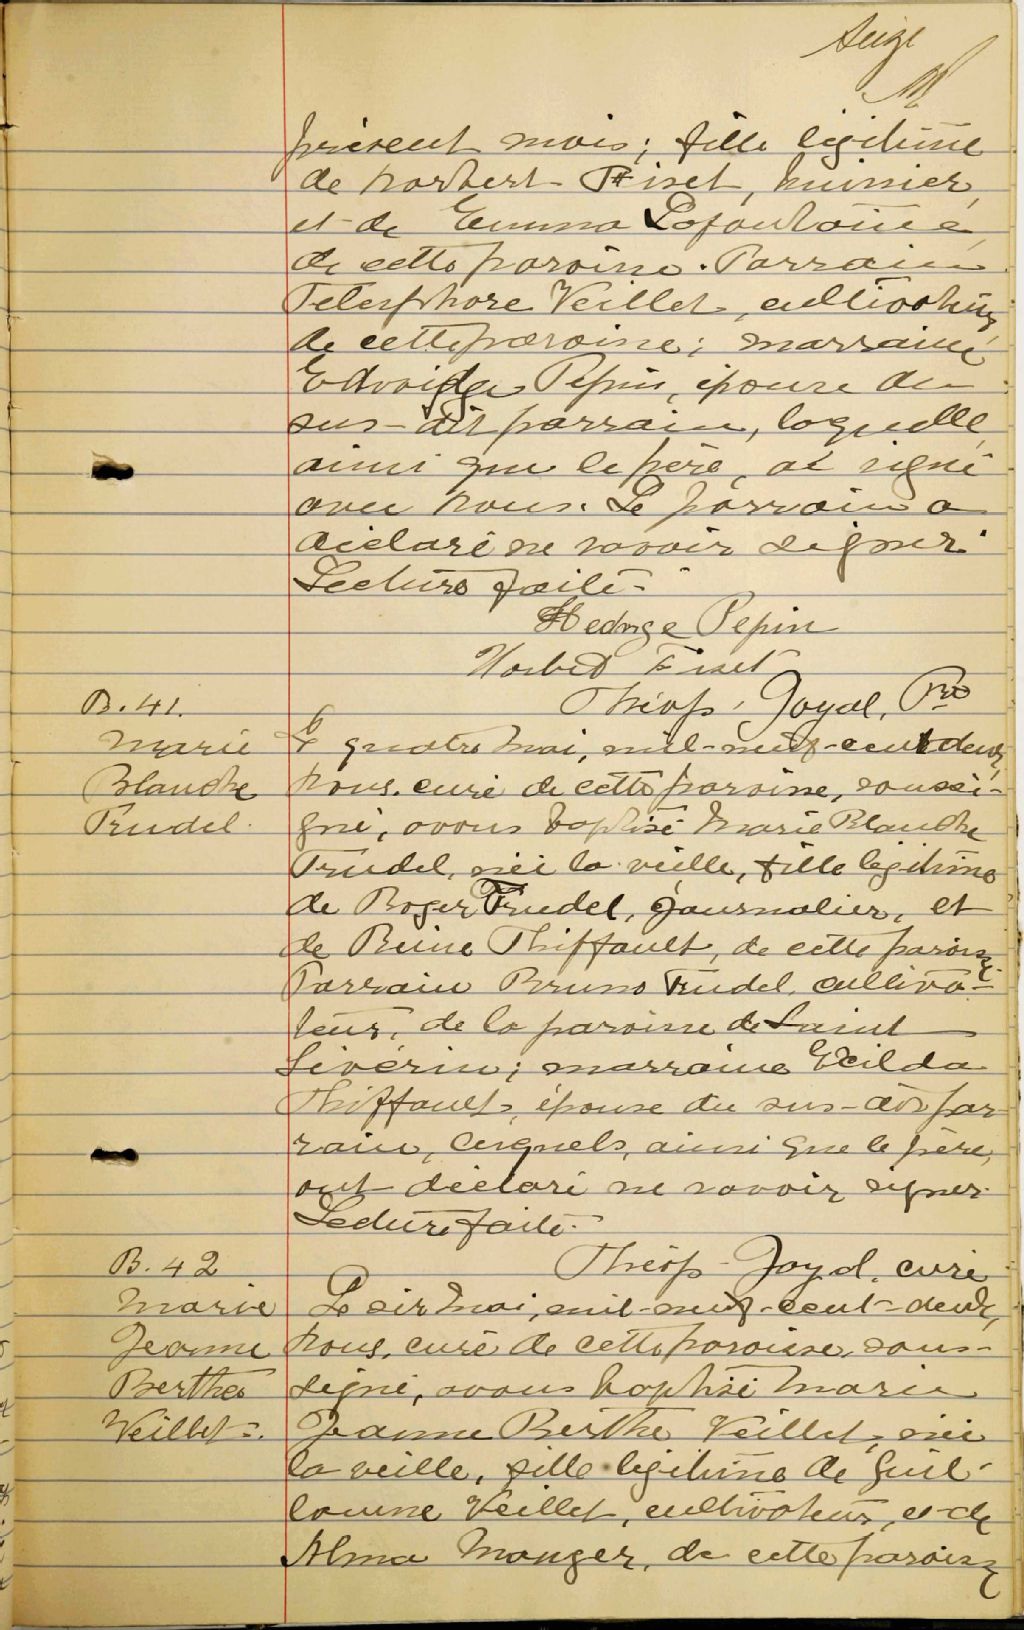 Seize
présent mois; fille légitime
de Norbert Fiset, meunier,
et de Emma Lafontaine
de cette paroisse. Parrain
Télesphore Veillet, cultivateur
de cette paroisse; marraine
Edwidge Pepin, épouse du
sus-dit parrain, laquelle
ainsi que le père, a signé
avec nous. Le parrain a
déclaré ne savoir signer.
Lecture faite.
Hedwge Pepin
Norbert Fiset
Théop. Joyal, Ptre
B. 41.
Marie
Blanche
Trudel.
Le quatre Mai, mil-neuf-cent deux,
Nous, curé de cette paroisse, soussi-
gné, avons baptisé Marie Blanche
Trudel, née la veille, fille légitime
de Roger Trudel, journalier, et
de Reine Thiffault, de cette paroisse
Parrain Bruno Trudel, cultiva-
teur, de la paroisse de Saint
Séverin; marraine Exilda
Thiffault, épouse du sus-dit par
rain, lesquels, ainsi que le père,
ont déclaré ne savoir signer.
Lecture faite.
Théop. Joyal, curé
B. 42
Marie
Jeanne
Berthe
Veillet.
Le six Mai, mil-neuf-cent-deux,
Nous, curé de cette paroisse, sous-
signé, avons baptisé Marie
Jeanne Berthe Veillet, née
la veille, fille légitime de Guil-
laume Veillet, cultivateur, et de
Alma Monger, de cette paroisse